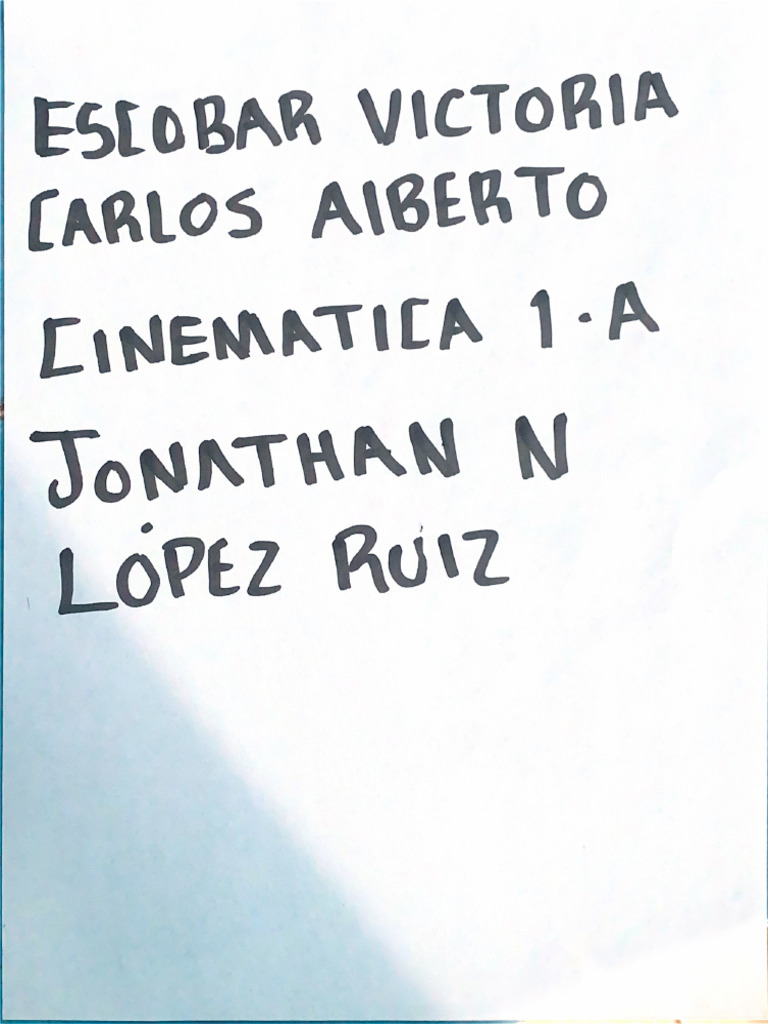 ESCOBAR VICTORIA
CARLOS AlBERTO
CINEMATICA 1.A
JONATHAN N
LÓPEZ RUIZ